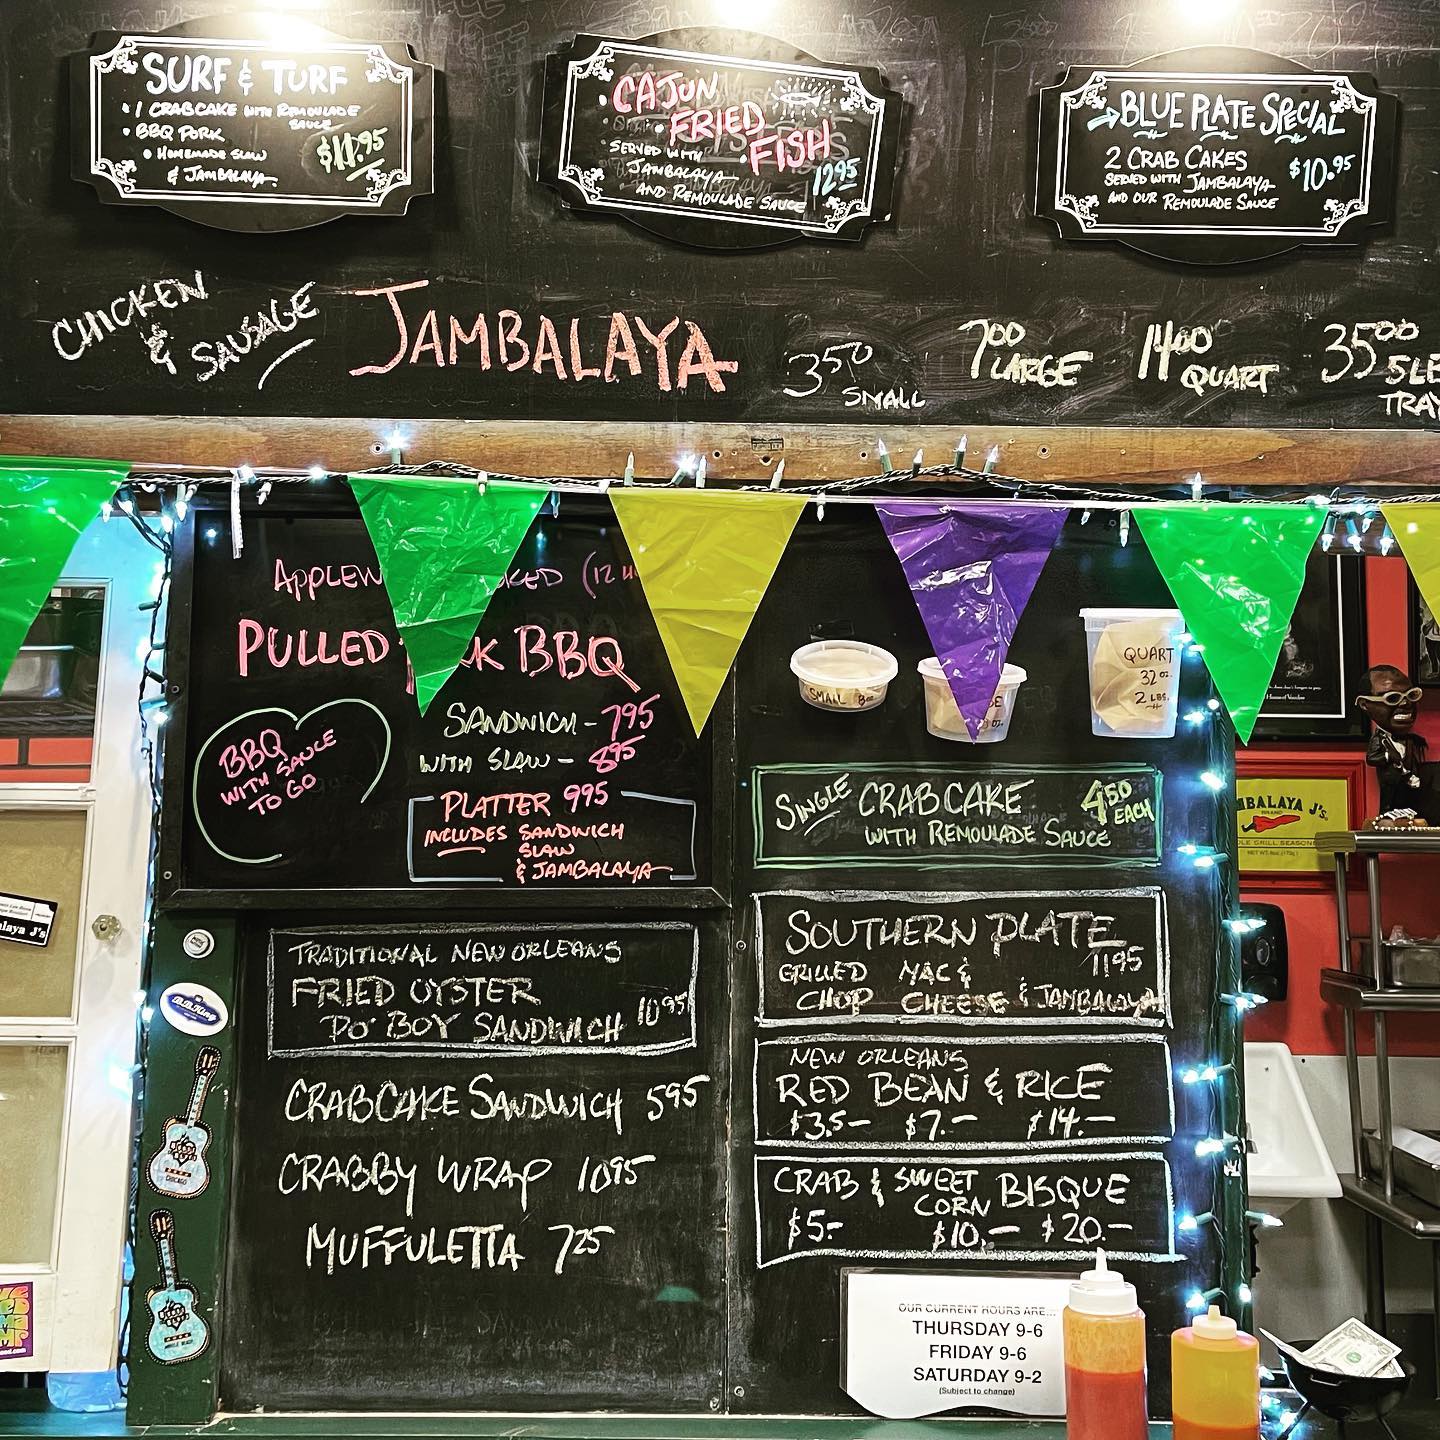 SURF & TURF
• 1 CRABCAKE WITH REMOULADE
SAUCE
• BBQ PORK
• HOMEMADE SLAW
& JAMBALAYA
.95
• CAJUN
• FRIED
• FISH
• SERVED WITH
JAMBALAYA
AND REMOULADE SAUCE
12 95
→ BLUE PLATE SPECIAL
2 CRAB CAKES
SERVED WITH JAMBALAYA
AND OUR REMOULADE SAUCE
$10.95
CHICKEN
& SAUSAGE
JAMBALAYA
3 50 SMALL
7 00 LARGE
14 00 QUART
35 00
TRAY
(12
PULLED BBQ
SANDWICH - 7 95
WITH SLAW - 8 95
BBQ
WITH SAUCE
TO GO
PLATTER 9 95
INCLUDES SANDWICH
SLAW
& JAMBALAYA
SMALL 8 oz.
QUART
32 oz.
2 LBS.
SINGLE CRABCAKE 4 50 EACH
WITH REMOULADE SAUCE
TRADITIONAL NEW ORLEANS
FRIED OYSTER
PO' BOY SANDWICH 10 95
CRABCAKE SANDWICH 5 95
CRABBY WRAP 10 95
MUFFULETTA 7 25
SOUTHERN PLATE
11 95
GRILLED MAC &
CHOP CHEESE & JAMBALAYA
NEW ORLEANS
RED BEAN & RICE
$3.5- $7.- $14.-
CRAB & SWEET
CORN BISQUE
$5.- $10.- $20.-
OUR CURRENT HOURS ARE...
THURSDAY 9-6
FRIDAY 9-6
SATURDAY 9-2
(Subject to change)
B.B. King
CHICAGO
MBALAYA J's.
House of Voodoo
laya J's